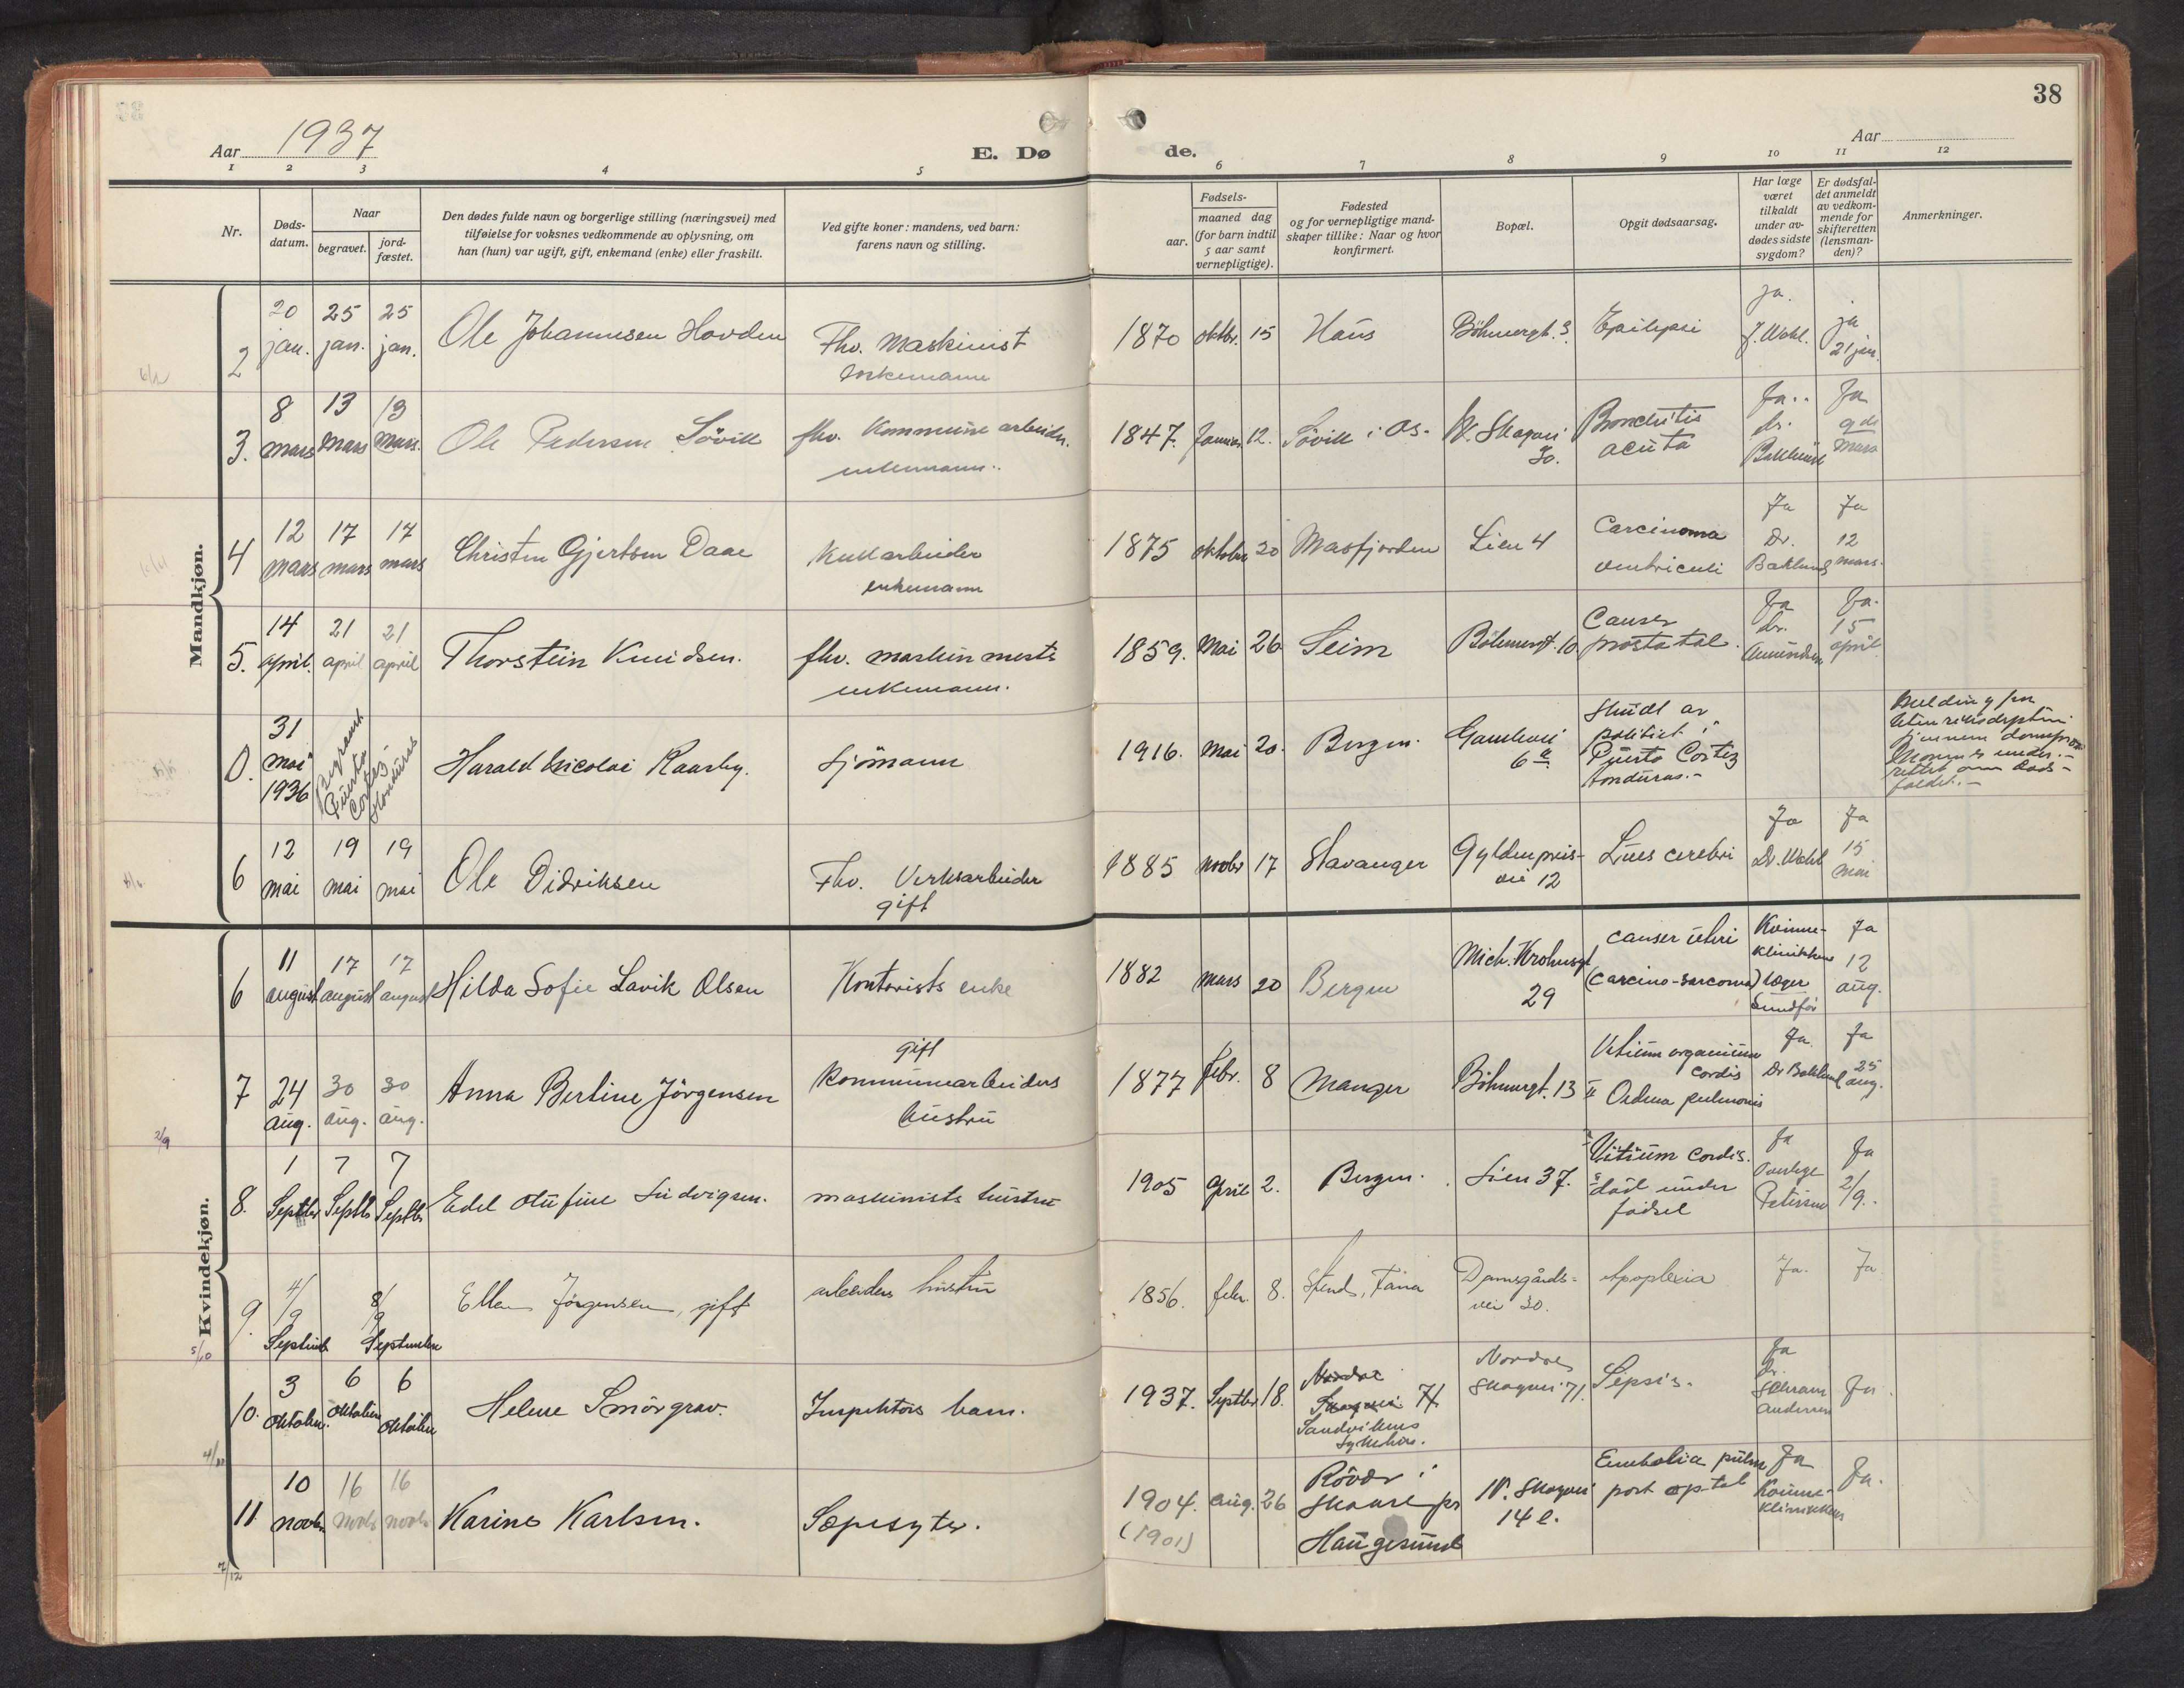 38
Aar 1937
E. Dø
de.
Aar
1 2 3 4 5 6 7 8 9 10 11 12
Nr.
Døds-
datum.
Naar
begravet.
jord-
fæstet.
Den dødes fulde navn og borgerlige stilling (næringsvei) med
tilføielse for voksnes vedkommende av oplysning, om
han (hun) var ugift, gift, enkemand (enke) eller fraskilt.
Ved gifte koner: mandens, ved barn:
farens navn og stilling.
Fødsels-
aar.
maaned dag
(for barn indtil
5 aar samt
vernepligtige).
Fødested
og for vernepligtige mand-
skaper tillike: Naar og hvor
konfirmert.
Bopæl.
Opgit dødsaarsag.
Har læge
været
tilkaldt
under av-
dødes sidste
sygdom?
Er dødsfal-
det anmeldt
av vedkom-
mende for
skifteretten
(lensman-
den)?
Anmerkninger.
Mandkjøn.
2
20
jan.
25
jan.
25
jan.
Ole Johannesen Hovden
Fhv. Maskinist
Enkemann
1870 oktbr. 15
Haus
Böhmergt. 3.
Epilepsi
ja.
J. Wahl.
ja
21 jan.
3.
8
mars
13
Mars
13
Mars.
Ole Pedersen Sövik
fhv. Kommune arbeider.
enkemann.
1847. Januar 12.
Sövik i Os.
N. Skogvei
30.
Bronchitis
acuta
Ja.
dr.
Baklund
Ja
9de
Mars
4
12
mars
17
mars
17
mars
Christen Gjertsen Daae
Kullarbeider
enkemann
1875 oktober 20
Masfjorden
Lien 4
Carcinoma
ventriculi
Ja
Dr.
Baklund
Ja
12
mars.
5.
14
april.
21
april
21
april
Thorstein Knudsen.
fhv. maskinmests
enkemann.
1859. Mai 26
Seim
Böhmergt. 10
Cancer
prostatal.
Ja
dr.
Amundsen
Ja.
15
april.
0.
31
mai
1936
Begravet
Puerto
Cortez
Honduras
Harald Nicolai Kaarby.
Sjömann
1916. Mai 20.
Bergen.
Gamlevei
6 a
Skudt av
politiet i
Puerto Cortez
Honduras.-
Melding fra
utenriksdeptm.
gjennem domspr.
Moren er under-
rettet om döds-
faldet.-
6
12
mai
19
mai
19
mai
Ole Didriksen
Fhv. Verksarbeider
gift
1885 novbr 17
Stavanger
Gyldenpris-
vei 12
Lues cerebri
Ja
Dr. Wahl
Ja
15
mai
Kvindekjøn.
6
11
august
17
august
17
august
Hilda Sofie Lavik Olsen
Kontorists enke
1882 mars 20
Bergen
Mich. Krohnsgt
29
cancer uteri
(Carcino-sarcoma)
Kvinne-
klinikkens
læger
Sundfør
Ja
12
aug.
7
24
aug.
30
aug.
30
aug.
Anna Bertine Jörgensen
gift
Kommunearbeiders
hustru
1877 febr. 8
Manger
Böhmergt. 13
Vitium organicum
cordis
II Oedma pulmonis
Ja.
Dr Baklund
Ja
25
aug.
2/9
8.
1
Septbr
7
Septbr
7
Septbr
Edel Olufine Ludvigsen.
maskinists hustru
1905 April 2.
Bergen.
Lien 37.
Vitium Cordis.
död under
fødsel
Ja
Overlæge
Petersen
Ja
2/9.
9.
4/9
September
8/9
September
Ellen Jörgensen, gift
arbeiders hustru
1856. febr. 8.
Stend, Fana
Damsgårds-
vei 30.
Apoplexia
Ja.
Ja
5/10
10.
3
Oktober.
6
Oktober
6
Oktober
Helene Smörgrav.
Inspektörs barn.
1937. Septbr 18.
Nordre
Skogvei 71
Sandvikens
sykehus.
Nordre
Skogvei 71.
Sepsis.
Ja
Dr.
Schram
Andersen
Ja.
11
10
novbr
16
novbr
16
novbr
Karine Karlsen.
Sæpesyter.
1904. aug. 26
(1901)
Rövær i
Skaare pr
Haugesund
N. Skogvei
14 e.
Embolia pulm
post optal
Ja
Kvinne-
klinikkens
Ja.
7/12